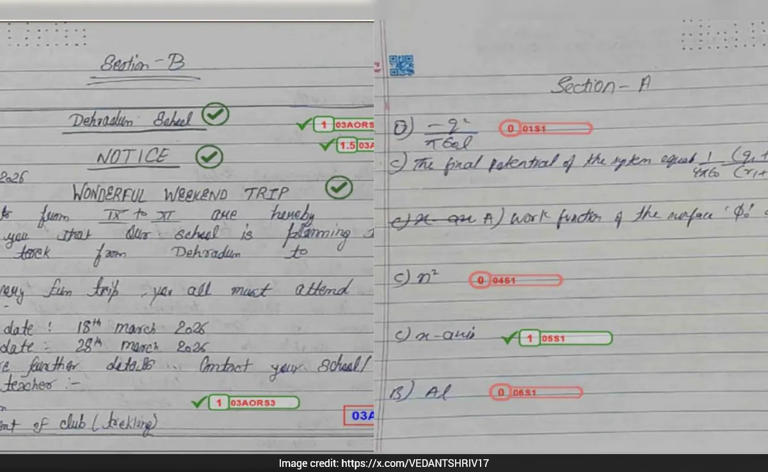 Section - B
Dehradun School
1 03AORS
1.5 03A
NOTICE
2026
WONDERFUL WEEKEND TRIP
from IX to XI are hereby
you that our school is planning
from Dehradun to
fun trip you all must attend
date : 18th march 2026
date : 28th march 2026
further details .. Contact your School/
teacher :-
1 03AORS3
of club (trekking)
03A
Section - A
D) -q²/πε₀l
0 01S1
C) The final potential of the system equal 1/4πε₀ (q₁+ (r₁+
A) Work function of the surface 'ϕ₀'
C) n²
0 04S1
C) x-axis
1 05S1
B) Al
0 06S1
Image credit: https://x.com/VEDANTSHRIV17